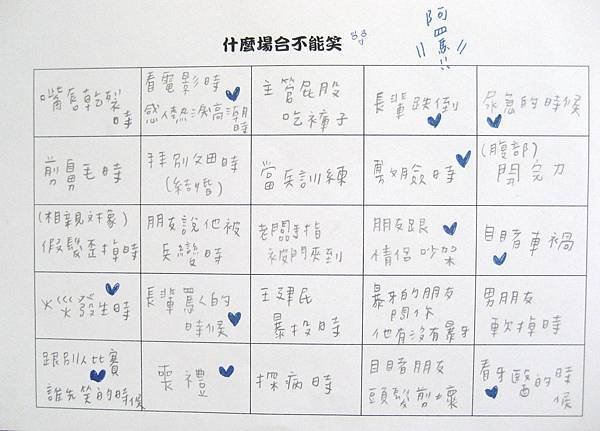 什麼場合不能笑
阿四馬!!
嘴唇乾裂
時
看電影時
感人熱淚高潮
時
主管屁股
吃褲子
長輩跌倒
尿急的時候
剪鼻毛時
拜別父母時
(結婚)
當兵訓練
剪臉時
(腹部)
開完刀
(相親對象)
假髮歪掉時
朋友說他被
兵變時
老闆手指
被門夾到
朋友跟
情侶吵架
目睹車禍
火災發生時
長輩罵人的
時候
王建民
暴投時
暴牙的朋友
問你
他有沒有暴牙
男朋友
軟掉時
跟別人比賽
誰先笑的時候
喪禮
探病時
目睹朋友
頭髮剪壞
看牙醫的時
候